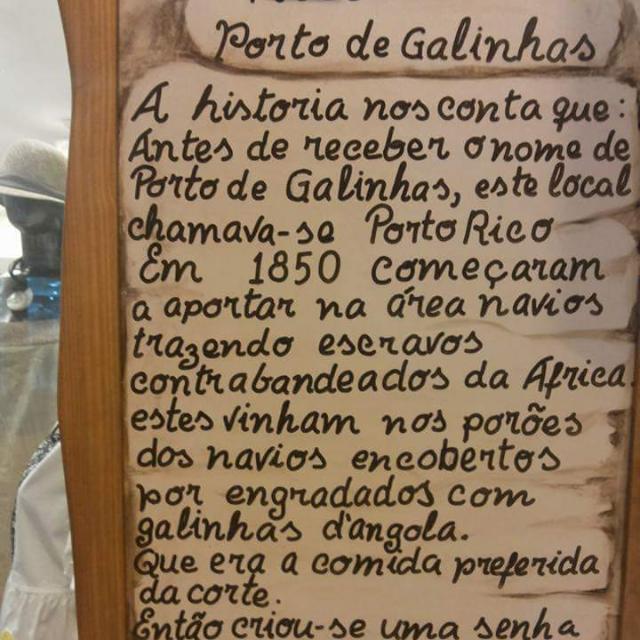 Porto de Galinhas
A historia nos conta que:
Antes de receber o nome de
Porto de Galinhas, este local
chamava-se Porto Rico
Em 1850 começaram
a aportar na área navios
trazendo escravos
contrabandeados da África
estes vinham nos porões
dos navios encobertos
por engradados com
galinhas d'angola.
Que era a comida preferida
da corte.
Então criou-se uma senha